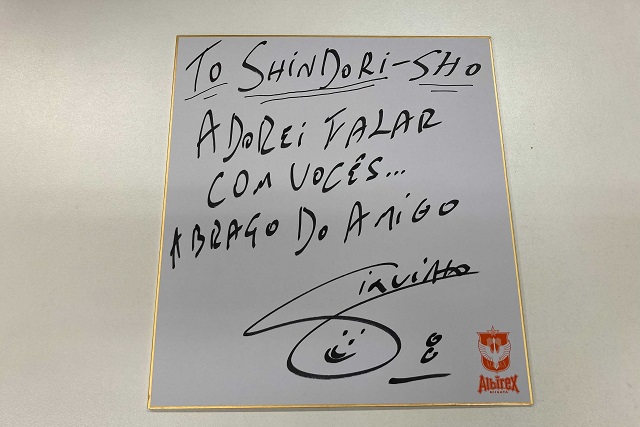 TO SHiNDORi-SHO
ADOREi FALAR
COM VOCÊS...
ABRAÇO DO AMIGO
AlbireX
NIIGATA